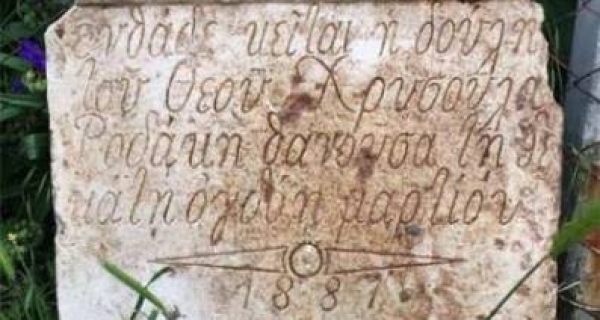 ενθάδε κεῖται ἡ δούλη
τοῦ Θεοῦ Χρυσούλα
Ροδάκη θανουσα τῇ δε
κάτη ὀγδόη μαρτίου
1887